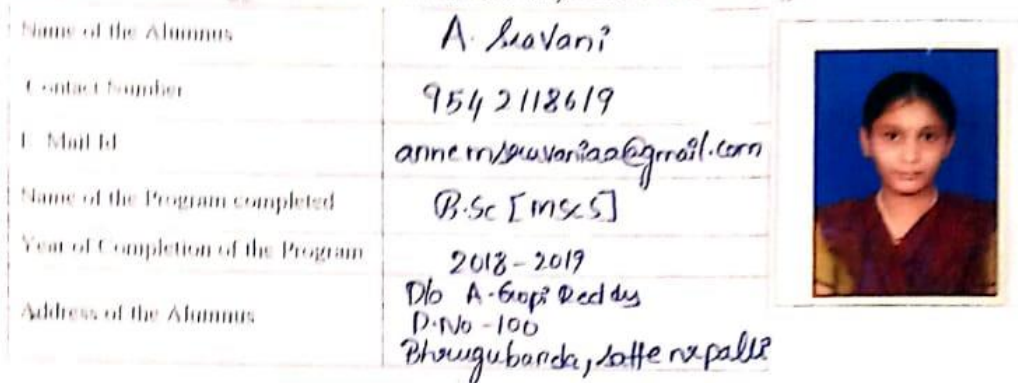 Name of the Alumnus A. Sravani
Contact Number 9542118619
E. Mail Id @gmail.com
Name of the Program completed B.Sc [MSCS]
Year of Completion of the Program 2018-2019
Address of the Alumnus D/o A. Gopi Reddy
D.No -100
Bhrugubanda, Sattenapalli